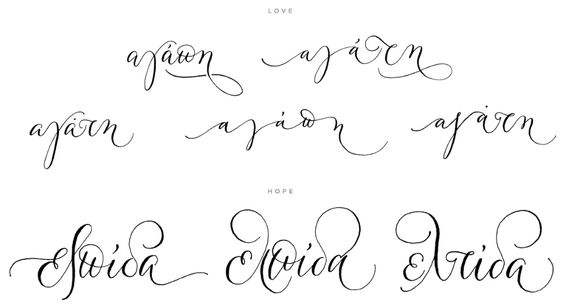 LOVE
αγάπη αγάπη
αγάπη αγάπη αγάπη
HOPE
ελπίδα ελπίδα ελπίδα